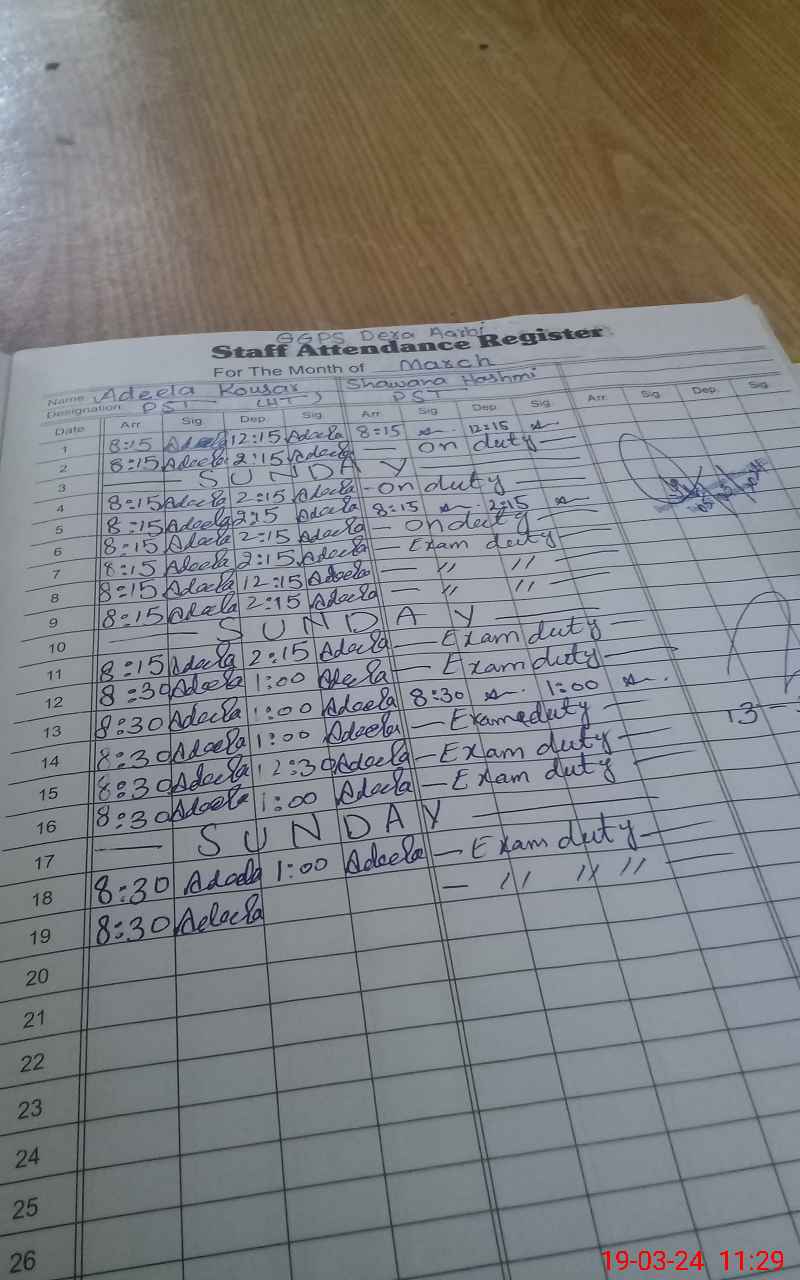 GGPS Dera Aarbi
Staff Attendance Register
For The Month of March
Name Adeela Kousar Shawana Hashmi
Designation: PST (HT) PST
Date Arr. Sig. Dep. Sig. Arr. Sig. Dep. Sig. Arr. Sig. Dep. Sig.
1 8:15 Adeela 12:15 Adeela 8:15 12:15
2 8:15 Adeela 2:15 Adeela — on duty —
3 — SUNDAY —
4 8:15 Adeela 2:15 Adeela - on duty —
5 8:15 Adeela 2:5 Adeela 8:15 2:15
6 8:15 Adeela 2:15 Adeela — on duty —
7 8:15 Adeela 2:15 Adeela — Exam duty —
8 8:15 Adeela 12:15 Adeela — " " —
9 8:15 Adeela 2:15 Adeela — " " —
10 — SUNDAY —
11 8:15 Adeela 2:15 Adeela — Exam duty —
12 8:30 Adeela 1:00 Adeela — Exam duty —
13 8:30 Adeela 1:00 Adeela 8:30 1:00
14 8:30 Adeela 1:00 Adeela — Exam duty —
15 8:30 Adeela 12:30 Adeela — Exam duty —
16 8:30 Adeela 1:00 Adeela — Exam duty —
17 — SUNDAY —
18 8:30 Adeela 1:00 Adeela — Exam duty —
19 8:30 Adeela — " " " —
20
21
22
23
24
25
26
19-03-24 11:29